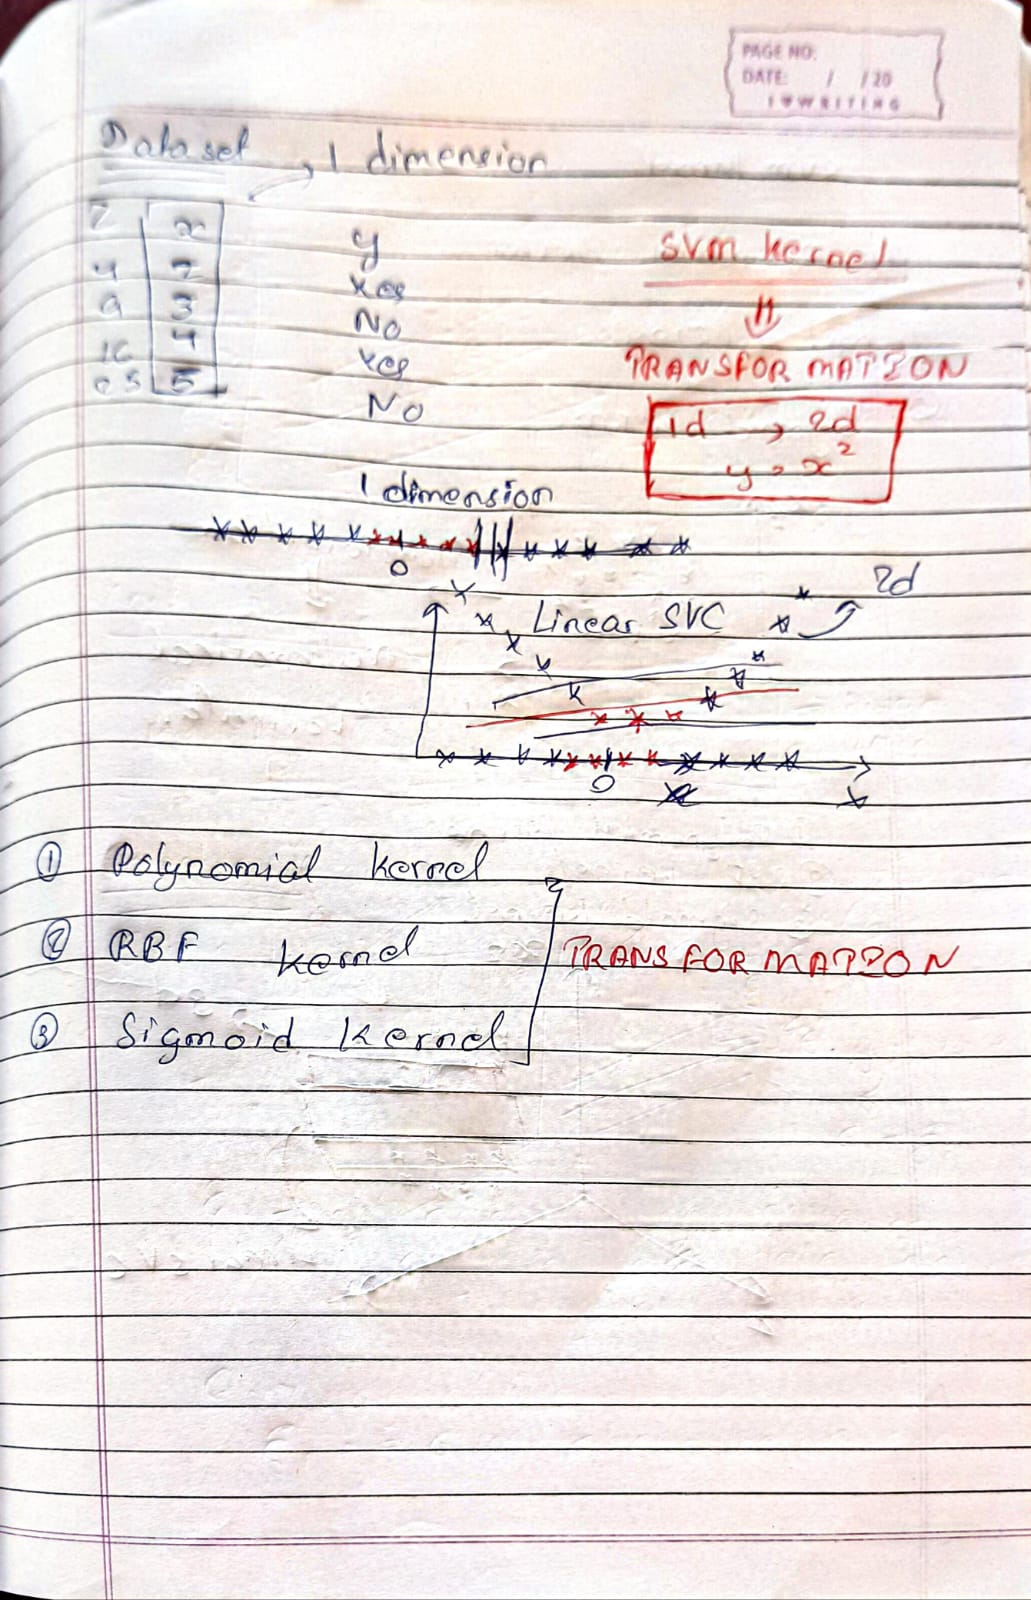 PAGE NO:
DATE: / /20
I ♥ WRITING
Dataset → 1 dimension
Z x y
4 2 Yes
9 3 No
16 4 Yes
25 5 No
SVM kernel
⇓
TRANSFORMATION
1d → 2d
y = x²
1 dimension
0
2d
Linear SVC
0
x
① Polynomial kernel
② RBF kernel
TRANSFORMATION
③ Sigmoid kernel